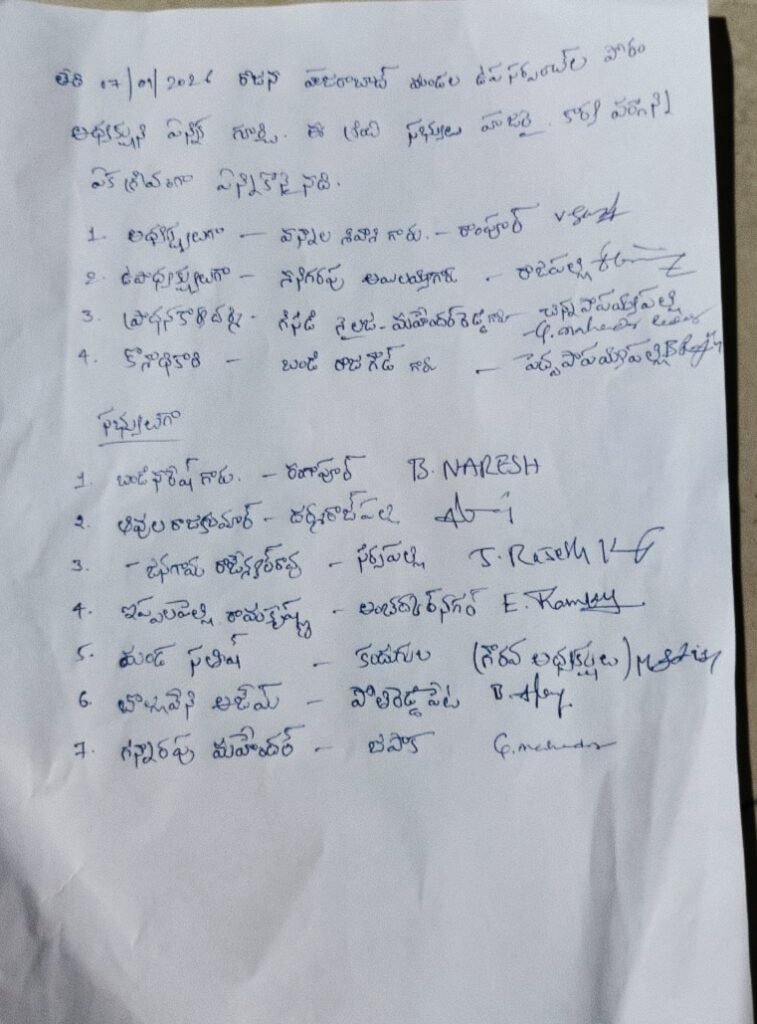 తేది 07/01/2026 రోజున హుజరాబాద్ మండల ఉపసర్పంచ్‌ల ఫోరం
అధ్యక్షుని ఎన్నిక గూర్చి. ఈ క్రింది సభ్యులు హాజరై కార్యవర్గాన్ని
ఏకగ్రీవంగా ఎన్నికొనైనది.
1. అధ్యక్షులుగా – వన్నాల శివాని గారు. – రాంపూర్
2. ఉపాధ్యక్షులుగా – గారు - రాజపల్లి
3. ప్రధానకార్యదర్శి - శైలజ - మహేందర్ రెడ్డి గారు చిన్నపాపయ్యపల్లి
4. కోశాధికారి – బండి రాజగౌడ్ గారు – పెద్దపాపయ్యపల్లి
సభ్యులుగా
1. బండి నరేష్ గారు. – రంగాపూర్ B. NARESH
2. ఆవుల రాజకుమార్ – ధర్మరాజ్‌పల్లి
3. – జనగామ – సిర్సపల్లి
4. ఇప్పలపల్లి రామకృష్ణ – అంబేద్కర్‌నగర్ E. Ramkry
5. మండ సతీష్ – కందుగుల (గౌరవ అధ్యక్షులు)
6. అజేమ్ – పోతిరెడ్డిపేట
7. గన్నారపు మహేందర్ – జూపాక G. mahender